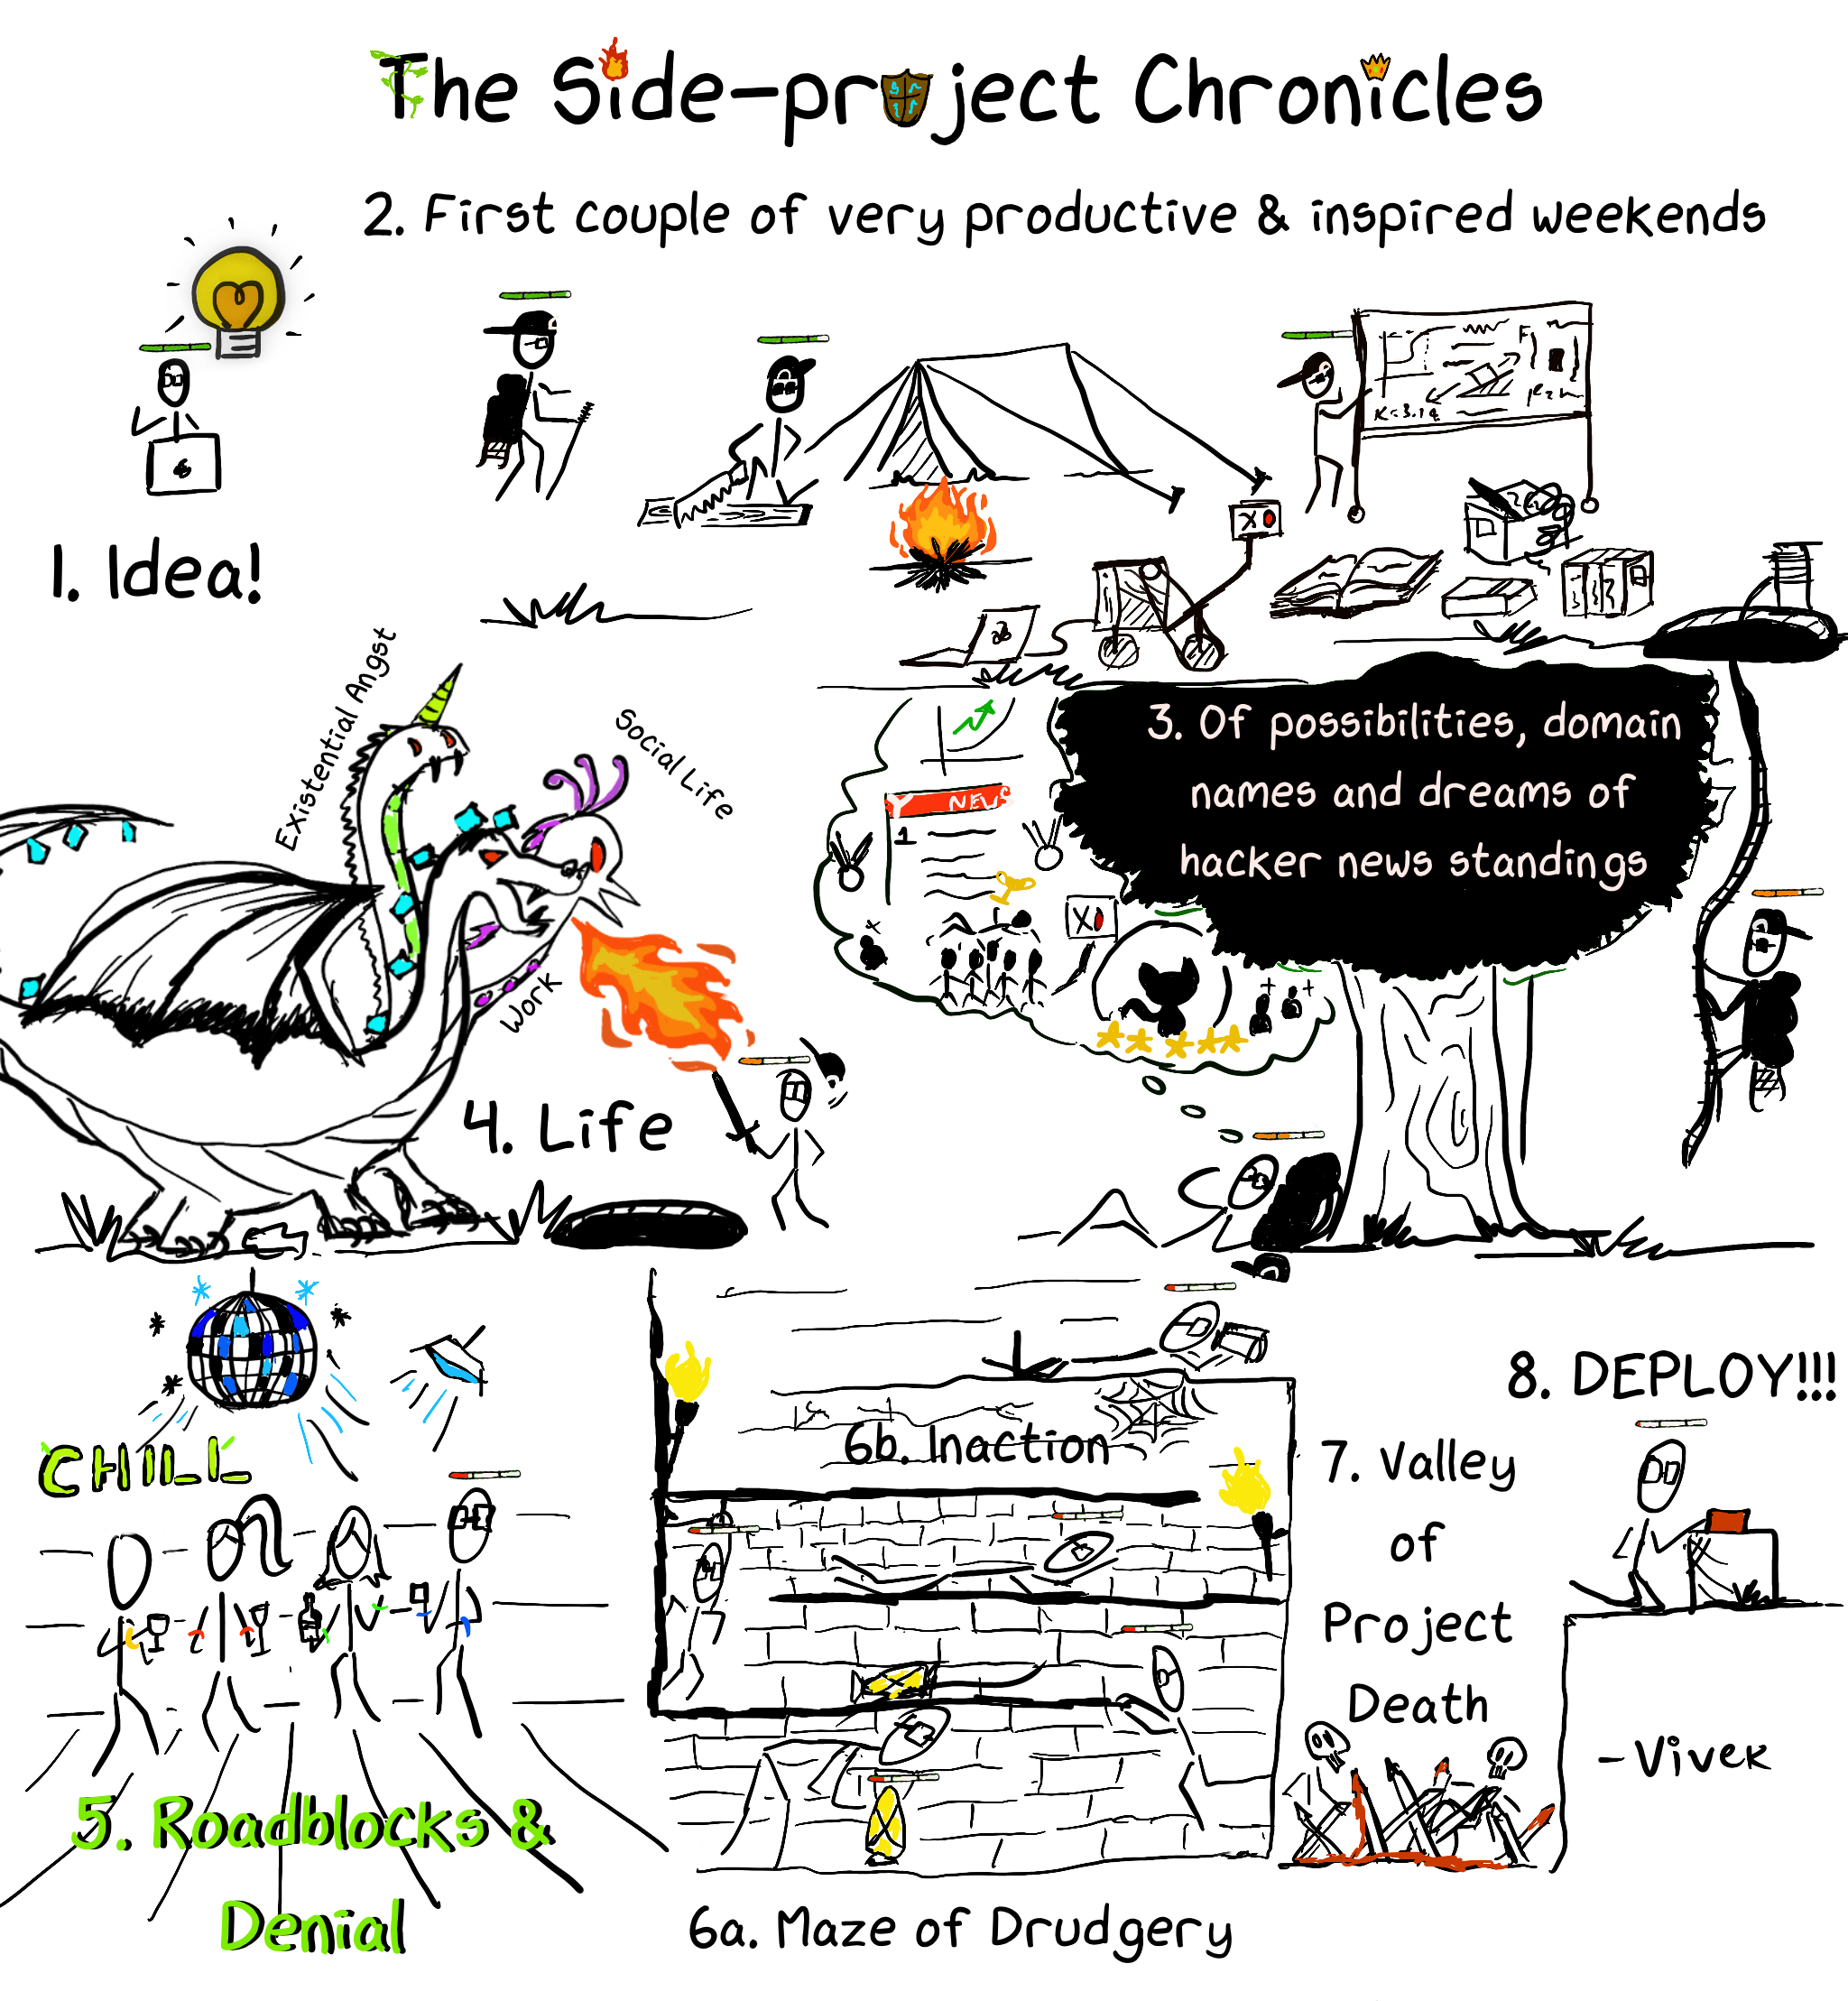 The Side-project Chronicles
2. First couple of very productive & inspired weekends
1. Idea!
K=3.14
X
3. Of possibilities, domain
names and dreams of
hacker news standings
Y NEWS
1
X
Existential Angst
Social Life
Work
4. Life
CHILL
5. Roadblocks &
Denial
6b. Inaction
6a. Maze of Drudgery
7. Valley
of
Project
Death
8. DEPLOY!!!
-Vivek